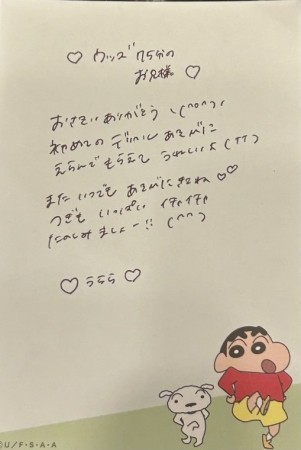 ♡ ウッズ 75分の
お兄様 ♡
おさそいありがとう \(^o^)/
初めての デリヘル あそびに
えらんで もらえて うれしいよ (TT)
また いつでも あそびに きてね ♡♡
つぎも いっぱい イチャイチャ
たのしみ ましょー!! (^^)
♡ うらら ♡
©U/F・S・A・A